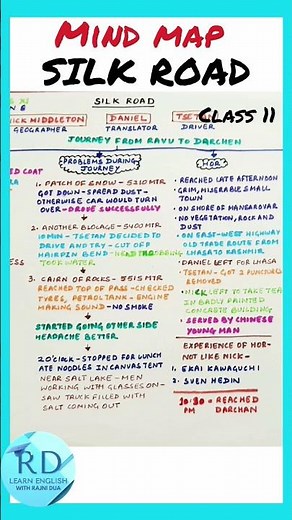 MIND MAP
SILK ROAD
CLASS 11
SILK ROAD
NICK MIDDLETON
GEOGRAPHER
DANIEL
TRANSLATOR
DRIVER
JOURNEY FROM RAVU TO DARCHEN
PROBLEMS DURING
JOURNEY
1. PATCH OF SNOW - 5210 MTR
GOT DOWN - SPREAD DUST -
OTHERWISE CAR WOULD TURN
OVER - DROVE SUCCESSFULLY
2. ANOTHER BLOCAGE - 5400 MTR
10 MIN - TSETAN DECIDED TO
DRIVE AND TRY - CUT OFF
HAIRPIN BEND - HEAD THROBBING
TOOK WATER
3. CAIRN OF ROCKS - 5515 MTRS
REACHED TOP OF PASS - CHECKED
TYRES, PETROL TANK - ENGINE
MAKING SOUND - NO SMOKE
STARTED GOING OTHER SIDE
HEADACHE BETTER
2 O'CLOCK - STOPPED FOR LUNCH
ATE NOODLES IN CANVAS TENT
NEAR SALT LAKE - MEN
WORKING WITH GLASSES ON -
SAW TRUCK FILLED WITH
SALT COMING OUT
HOR
• REACHED LATE AFTERNOON
• GRIM, MISERABLE SMALL
TOWN
• ON SHORE OF MANSAROVAR
• NO VEGETATION, ROCK AND
DUST
• ON EAST-WEST HIGHWAY
OLD TRADE ROUTE FROM
LHASA TO KASHMIR
• DANIEL LEFT FOR LHASA
• TSETAN - GOT 2 PUNCTURES
REMOVED
• NICK LEFT TO TAKE TEA
IN BADLY PAINTED
CONCRETE BUILDING
• SERVED BY CHINESE
YOUNG MAN
EXPERIENCE OF HOR -
NOT LIKE NICK -
1. EKAI KAWAGUCHI
2. SVEN HEDIN
10:30 PM - REACHED
DARCHAN
RD
LEARN ENGLISH
WITH RAJNI DUA